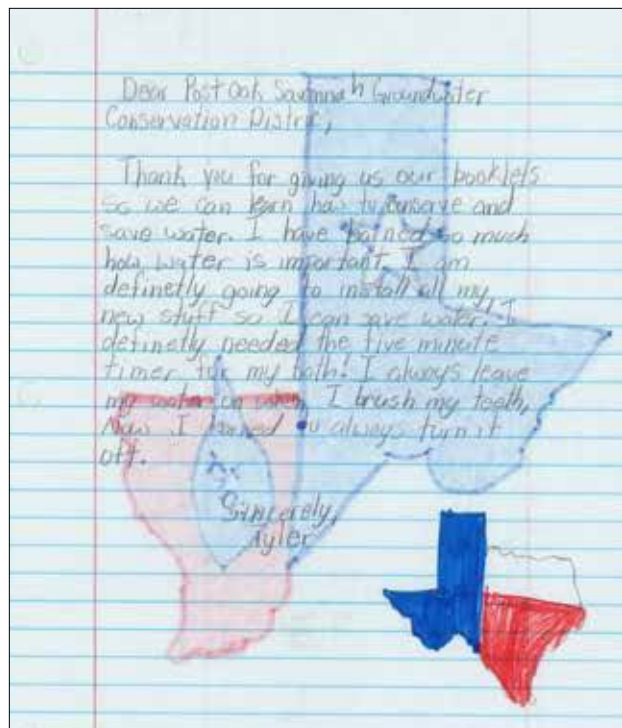 Dear Post Oak Savannah Groundwater
Conservation Distric,
Thank you for giving us our booklets
so we can learn how to consave and
save water. I have larned so much
how water is important. I am
definetly going to install all my
new stuff so I can save water. I
definelly needed the five minute
timer for my bath! I always leave
my water on when I brush my teeth,
Now I larned to always turn it
off.
Sincerely,
Tyler